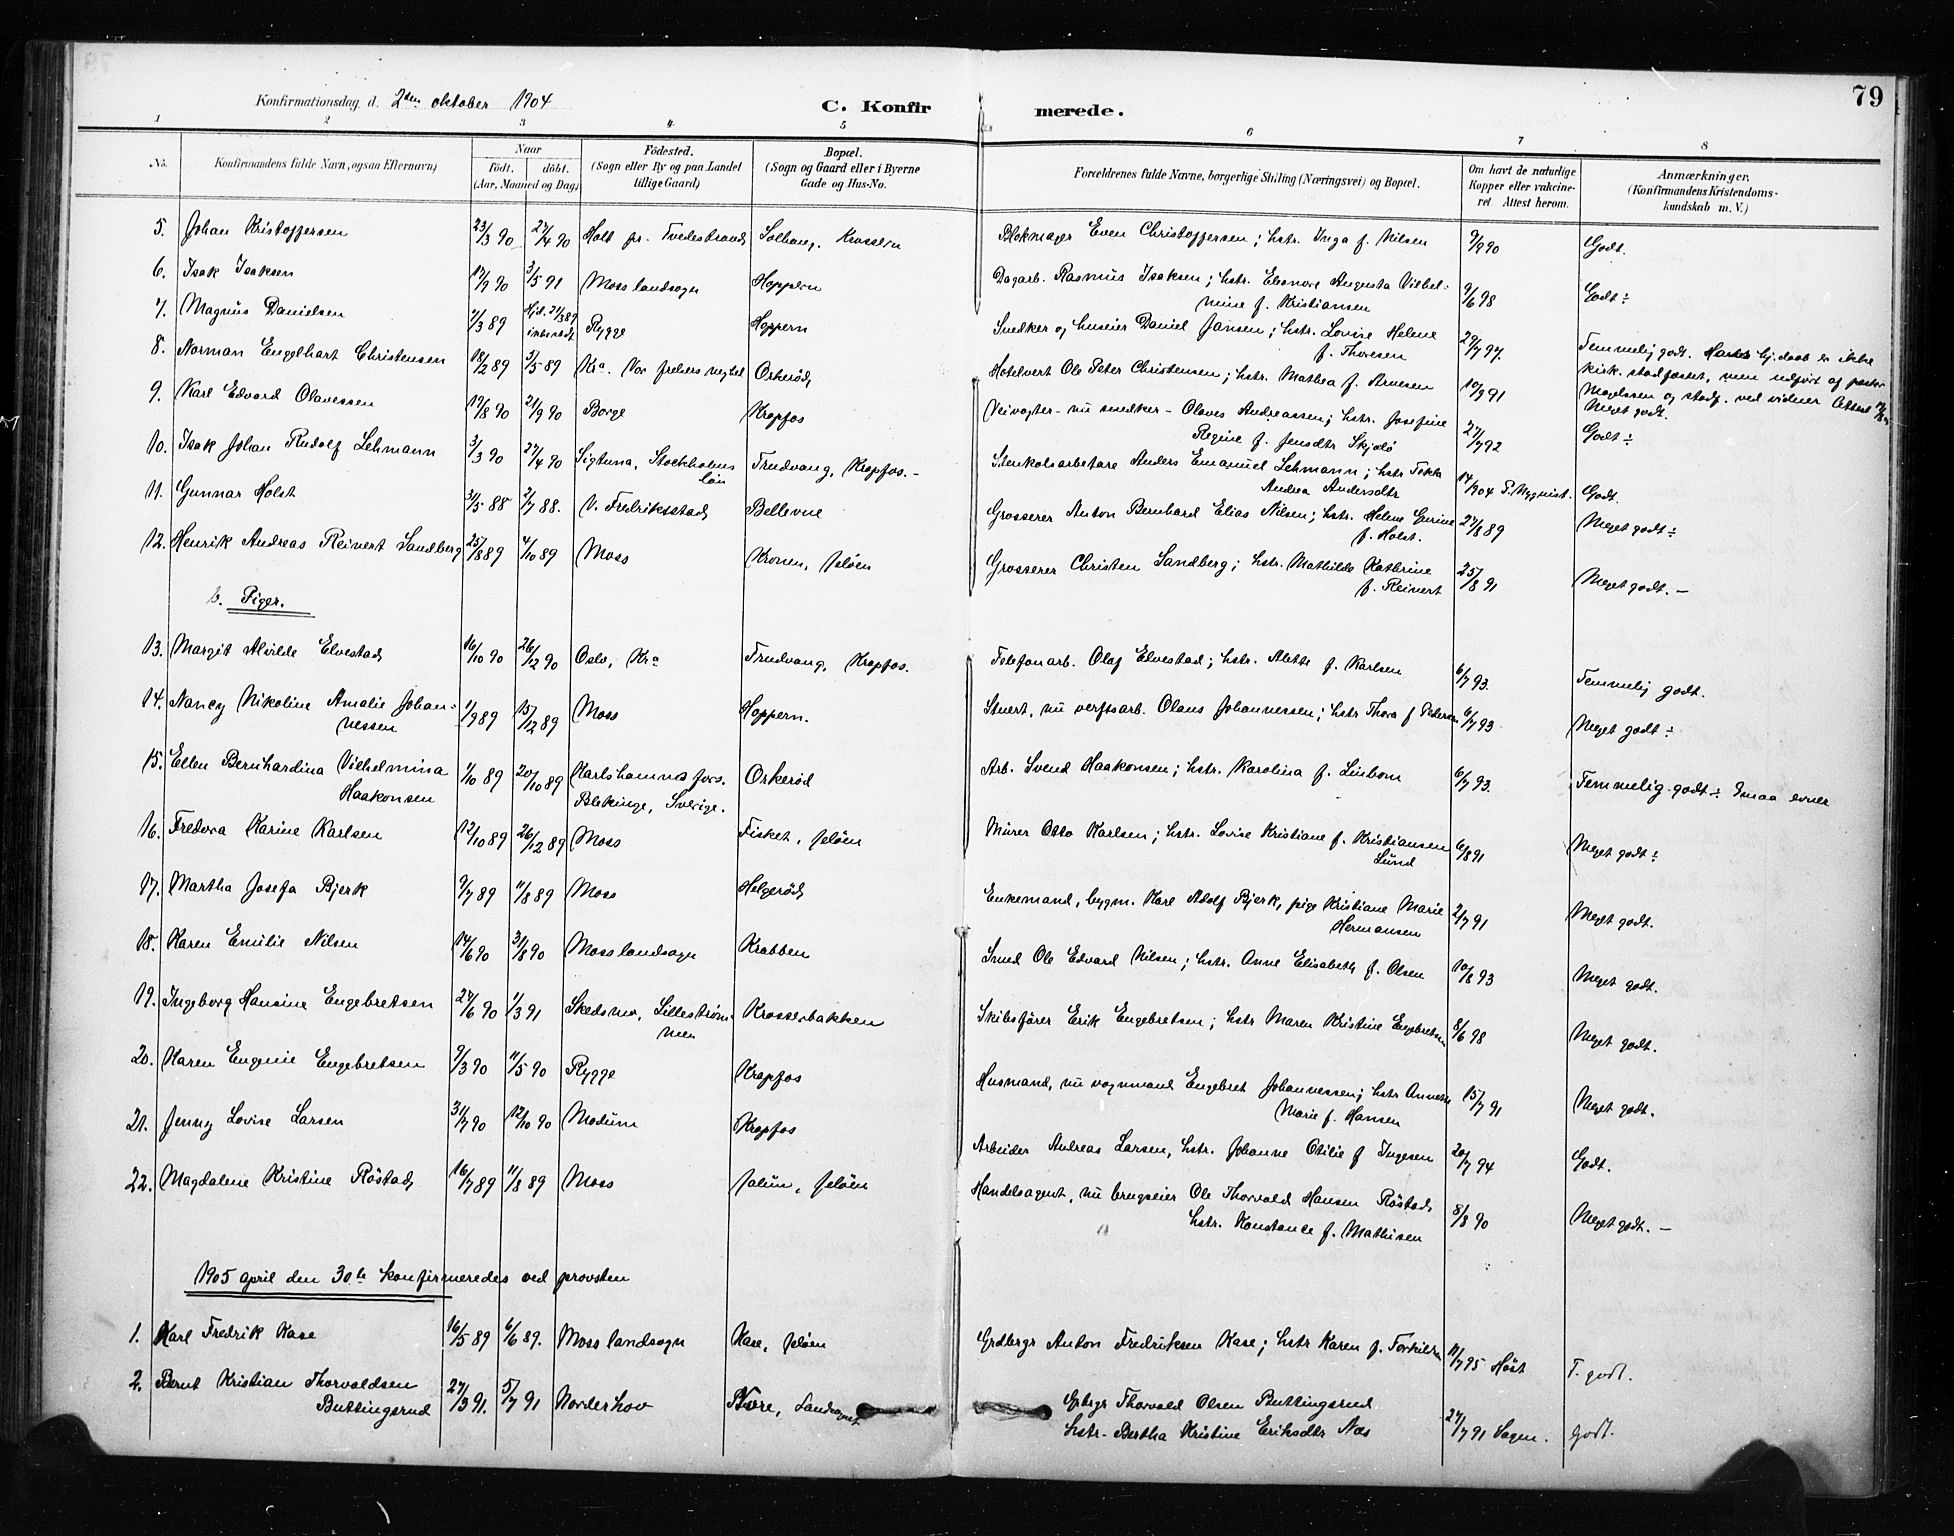 79
Konfirmationsdag d. 2den oktober 1904
C. Konfirmerede.
1 2 3 4 5 6 7 8
No. Konfirmandens fulde Navn, ogsaa Efternavn) Naar født. døbt. (Aar, Maaned og Dag) Fødested. (Sogn eller By og paa Landet tillige Gaard) Bopæl. (Sogn og Gaard eller i Byerne Gade og Hus-No. Forældrenes fulde Navne, borgerlige Stilling (Næringsvei) og Bopæl. Om havt de naturlige Kopper eller vakcineret. Attest herom. Anmærkninger, (Konfirmandens Kristendomskundskab m. V.)
5. Johan Kristoffersen 23/3 90 27/4 90 Holt pr. Tvedestrand Solhaug, Krossern Blokmager Even Christoffersen; hstr. Inga f. Nilsen 9/9 90 Godt.
6. Isak Isaksen 17/9 90 3/5 91 Moss landsogn Hoppern Dagarb. Rasmus Isaksen; hstr. Eleonore Augusta Vilhel-
mine f. Kristiansen 9/6 98 Godt ÷
7. Magnus Danielsen 7/3 89 Hjd. 21/3 89 Rygge Hoppern Snedker og huseier Daniel Jansen; hstr. Lovise Helene
f. Thoresen 29/7 97. Temmelig godt. Hj.daab er ikke
kirk. stadfæstet, men udført af pastor
Magelssen og stadf. ved vidner
8. Norman Engelhart Christensen 18/2 89 3/5 89 Kra. Vor frelsers Orkerød Hotelvert Ole Peter Christensen; hstr. Mathea f. Arnesen 10/9 91 Meget godt.
9. Karl Edvard Olavessen 19/8 90 21/9 90 Borge Kropfos Veivogter - nu snedker - Olaves Andreassen; hstr. Josefine
Regine f. Jensdtr Skjolø 27/7 92 Godt ÷
10. Isak Johan Rudolf Lehmann 3/3 90 27/4 90 Sigtuna, Stockholms
län Trudvang, Kropfos. - Stenkolsarbetare Anders Emanuel Lehmann; hstr
Andrea Andersdtr 14/9 04 P. Nyqvist. Godt.
11. Gunnar Holst 31/5 88 2/7 88. V. Fredriksstad Bellevue Grosserer Anton Bernhard Elias Nilsen; hstr. Helene Gurine
f. Holst. 27/8 89 Meget godt ÷
12. Henrik Andreas Reinert Sandberg 25/8 89 4/10 89 Moss Kronen, Jeløen Grosserer Christen Sandberg; hstr. Mathilde Kathrine
f. Reinert 25/8 91 Meget godt. -
b. Piger.
13. Margit Alvilde Elvestad 16/10 90 26/12 90 Oslo, Kra Trudvang, Kropfos. Telefonarb. Olaf Elvestad; hstr. Alette f. Karlsen 6/7 93. Temmelig godt.
14. Nancy Nikoline Amalie Johan-
nessen 1/9 89 15/12 89 Moss Hoppern. Stuert, nu verftsarb. Olaus Johannessen; hstr Thora f Pedersen 6/7 93 Meget godt ÷
15. Ellen Bernhardina Vilhelmina
Haakonsen 1/10 89 20/10 89 Karlshamns fors.
Blekinge, Sverige. Orkerød Arb. Svend Haakonsen; hstr. Karolina f. Linbom 6/7 93. Temmelig godt ÷ Smaa evner
16. Fredora Karine Karlsen 12/10 89 26/12 89 Moss Fisket, Jeløen Murer Otto Karlsen; hstr. Lovise Kristiane f. Kristiansen
Lund 6/8 91 Meget godt ÷
17. Martha Josefa Bjerk 9/7 89 11/8 89 Moss Helgerød Enkemand, bygm. Karl Adolf Bjerk, pige Kristiane Marie
Hermansen 2/7 91 Meget godt.
18. Karen Emilie Nilsen 14/6 90 31/8 90 Moss landsogn Krabben Smed Ole Edvard Nilsen; hstr. Anne Elisabeth f. Olsen 10/8 93 Meget godt.
19. Ingeborg Hansine Engebretsen 27/6 90 1/3 91 Skedsmo, Lillestrøm-
men Krosserbakken Skibsfører Erik Engebretsen; hstr Maren Kristine Engebretsen 8/6 98 Meget godt.
20. Karen Eugenie Engebretsen 9/3 90 11/5 90 Rygge Kropfos Husmand, nu vognmand Engebret Johannessen; hstr Annette
Marie f. Hansen 15/7 91 Meget godt.
21. Jenny Lovise Larsen 31/7 90 12/10 90 Modum Kropfos Arbeider Andreas Larsen, hstr. Johanne Otilie f Ingesen 20/7 94 Godt.
22. Magdalene Kristine Røstad 16/7 89 11/8 89 Moss Jalun, Jeløen Handelsagent, nu brugseier Ole Thorvald Hansen Røstad,
hstr. Konstance f. Mathisen 8/8 90 Meget godt. -
1905 april den 30te konfirmeredes ved provsten
1. Karl Fredrik Kase 16/5 89 6/6 89. Moss landsogn Kase, Jeløen Grdbrgr Anton Fredriksen Kase; hstr Karen f. Torkildsen 11/7 95 Høst T. godt.
2. Bernt Kristian Thorvaldsen
Buttingsrud 27/3 91. 5/7 91 Norderhov Nore, Landsognet Thorvald Olsen Buttingsrud
hstr. Bertha Kristine Eriksdtr Næs 27/7 91 Sagen. godt.